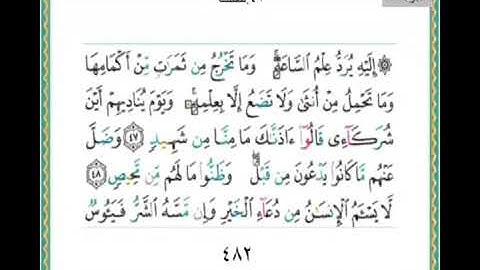 ۞ إِلَيْهِ يُرَدُّ عِلْمُ السَّاعَةِ ۚ وَمَا تَخْرُجُ مِن ثَمَرَٰتٍ مِّنْ أَكْمَامِهَا
وَمَا تَحْمِلُ مِنْ أُنثَىٰ وَلَا تَضَعُ إِلَّا بِعِلْمِهِۦ ۚ وَيَوْمَ يُنَادِيهِمْ أَيْنَ
شُرَكَآءِى قَالُوٓا۟ ءَاذَنَّٰكَ مَا مِنَّا مِن شَهِيدٍ ٤٧ وَضَلَّ
عَنْهُم مَّا كَانُوا۟ يَدْعُونَ مِن قَبْلُ ۖ وَظَنُّوا۟ مَا لَهُم مِّن مَّحِيصٍ ٤٨
لَّا يَسْـَٔمُ ٱلْإِنسَٰنُ مِن دُعَآءِ ٱلْخَيْرِ وَإِن مَّسَّهُ ٱلشَّرُّ فَيَـُٔوسٌ
٤٨٢